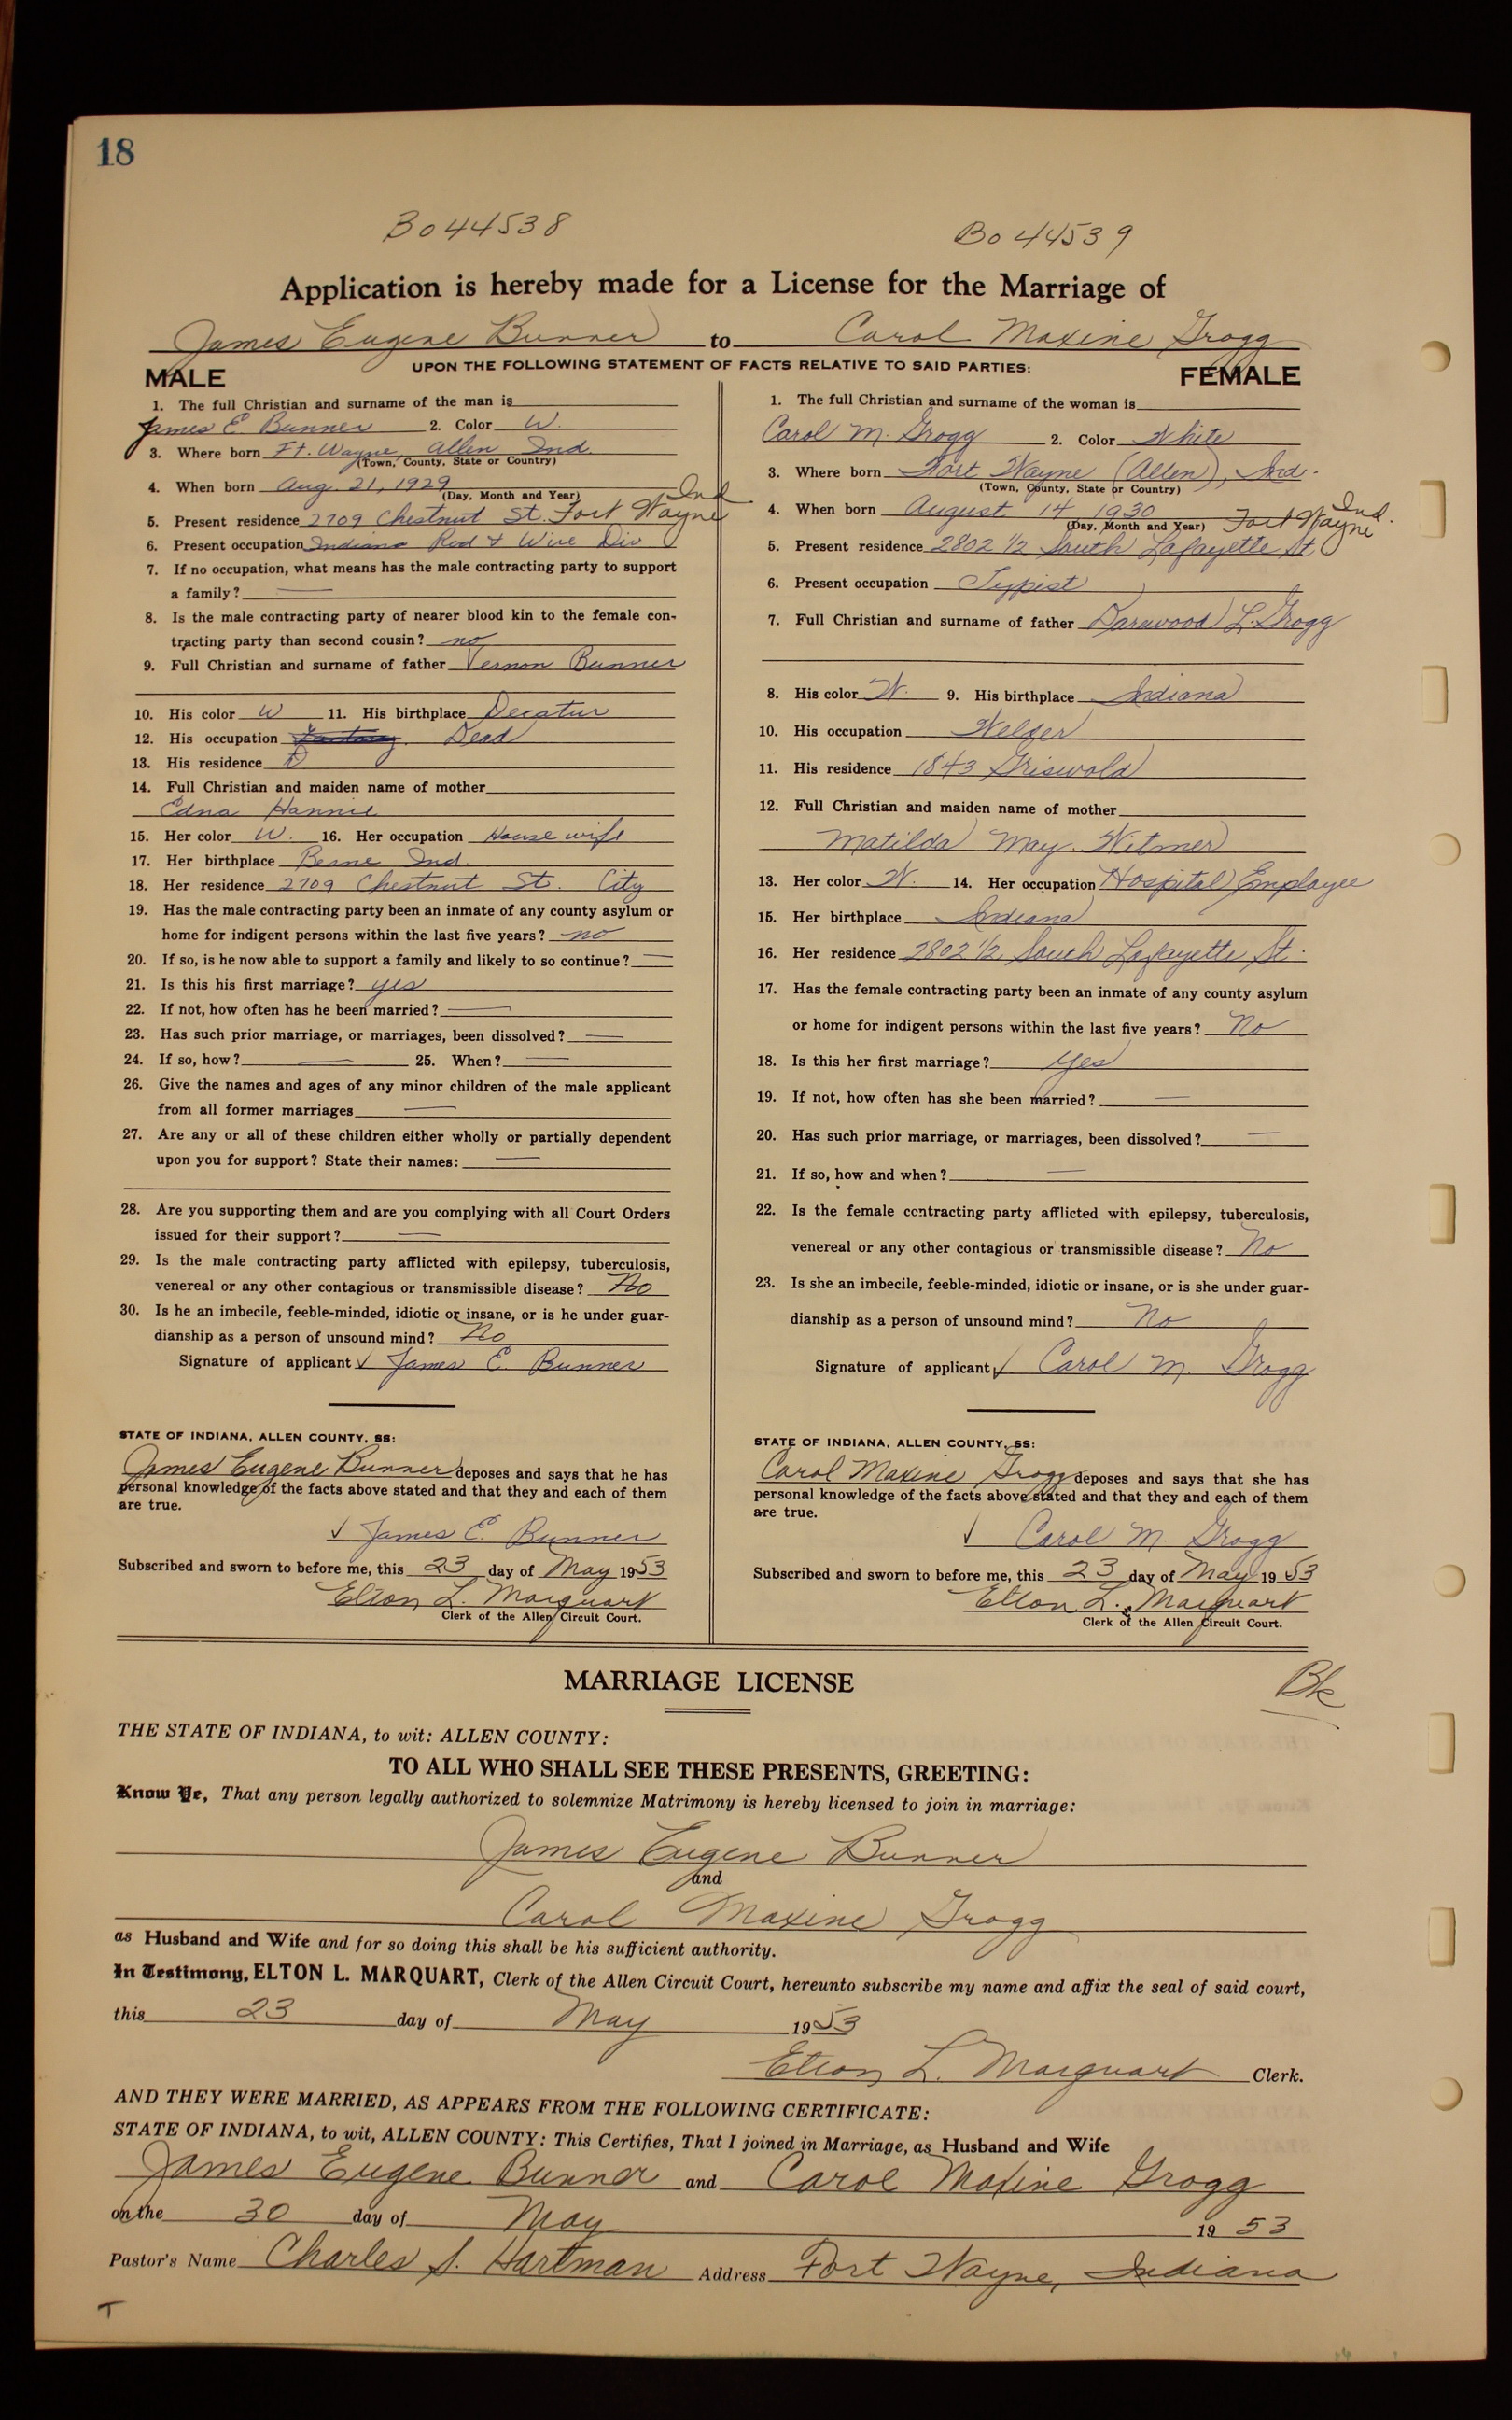 18
Bo44538
Bo44539
Application is hereby made for a License for the Marriage of
James Eugene Bunner to Carol Maxine Grogg
UPON THE FOLLOWING STATEMENT OF FACTS RELATIVE TO SAID PARTIES:
MALE
1. The full Christian and surname of the man is
James E. Bunner 2. Color W.
3. Where born Ft. Wayne, Allen Ind.
(Town, County, State or Country)
4. When born Aug. 21, 1929
(Day, Month and Year)
5. Present residence 2709 Chestnut St. Fort Wayne Ind
6. Present occupation Indiana Rod & Wire Div
7. If no occupation, what means has the male contracting party to support
a family? —
8. Is the male contracting party of nearer blood kin to the female con-
tracting party than second cousin? no
9. Full Christian and surname of father Vernon Bunner
10. His color W 11. His birthplace Decatur
12. His occupation Dead
13. His residence D
14. Full Christian and maiden name of mother
Edna Hannie
15. Her color W. 16. Her occupation House wife
17. Her birthplace Berne Ind.
18. Her residence 2709 Chestnut St. City
19. Has the male contracting party been an inmate of any county asylum or
home for indigent persons within the last five years? no
20. If so, is he now able to support a family and likely to so continue? —
21. Is this his first marriage? yes
22. If not, how often has he been married? —
23. Has such prior marriage, or marriages, been dissolved? —
24. If so, how? — 25. When? —
26. Give the names and ages of any minor children of the male applicant
from all former marriages —
27. Are any or all of these children either wholly or partially dependent
upon you for support? State their names: —
28. Are you supporting them and are you complying with all Court Orders
issued for their support? —
29. Is the male contracting party afflicted with epilepsy, tuberculosis,
venereal or any other contagious or transmissible disease? No
30. Is he an imbecile, feeble-minded, idiotic or insane, or is he under guar-
dianship as a person of unsound mind? No
Signature of applicant ✓ James E. Bunner
STATE OF INDIANA, ALLEN COUNTY, SS:
James Eugene Bunner deposes and says that he has
personal knowledge of the facts above stated and that they and each of them
are true.
✓ James E. Bunner
Subscribed and sworn to before me, this 23 day of May 1953
Elton L. Marquart
Clerk of the Allen Circuit Court.
FEMALE
1. The full Christian and surname of the woman is
Carol M. Grogg 2. Color White
3. Where born Fort Wayne (Allen), Ind.
(Town, County, State or Country)
4. When born August 14 1930
(Day, Month and Year)
5. Present residence 2802 1/2 South Lafayette St Fort Wayne Ind.
6. Present occupation Typist
7. Full Christian and surname of father Darwood L. Grogg
8. His color W. 9. His birthplace Indiana
10. His occupation Welder
11. His residence 1843 Griswold
12. Full Christian and maiden name of mother
Matilda May Witmer
13. Her color W. 14. Her occupation Hospital Employee
15. Her birthplace Indiana
16. Her residence 2802 1/2 South Lafayette St.
17. Has the female contracting party been an inmate of any county asylum
or home for indigent persons within the last five years? No
18. Is this her first marriage? Yes
19. If not, how often has she been married? —
20. Has such prior marriage, or marriages, been dissolved? —
21. If so, how and when? —
22. Is the female contracting party afflicted with epilepsy, tuberculosis,
venereal or any other contagious or transmissible disease? No
23. Is she an imbecile, feeble-minded, idiotic or insane, or is she under guar-
dianship as a person of unsound mind? No
Signature of applicant ✓ Carol M. Grogg
STATE OF INDIANA, ALLEN COUNTY, SS:
Carol Maxine Grogg deposes and says that she has
personal knowledge of the facts above stated and that they and each of them
are true.
✓ Carol M. Grogg
Subscribed and sworn to before me, this 23 day of May 1953
Elton L. Marquart
Clerk of the Allen Circuit Court.
MARRIAGE LICENSE
Bk
THE STATE OF INDIANA, to wit: ALLEN COUNTY:
TO ALL WHO SHALL SEE THESE PRESENTS, GREETING:
Know Ye, That any person legally authorized to solemnize Matrimony is hereby licensed to join in marriage:
James Eugene Bunner
and
Carol Maxine Grogg
as Husband and Wife and for so doing this shall be his sufficient authority.
In Testimony, ELTON L. MARQUART, Clerk of the Allen Circuit Court, hereunto subscribe my name and affix the seal of said court,
this 23 day of May 1953
Elton L. Marquart Clerk.
AND THEY WERE MARRIED, AS APPEARS FROM THE FOLLOWING CERTIFICATE:
STATE OF INDIANA, to wit, ALLEN COUNTY: This Certifies, That I joined in Marriage, as Husband and Wife
James Eugene Bunner and Carol Maxine Grogg
on the 30 day of May 1953
Pastor's Name Charles S. Hartman Address Fort Wayne, Indiana
T